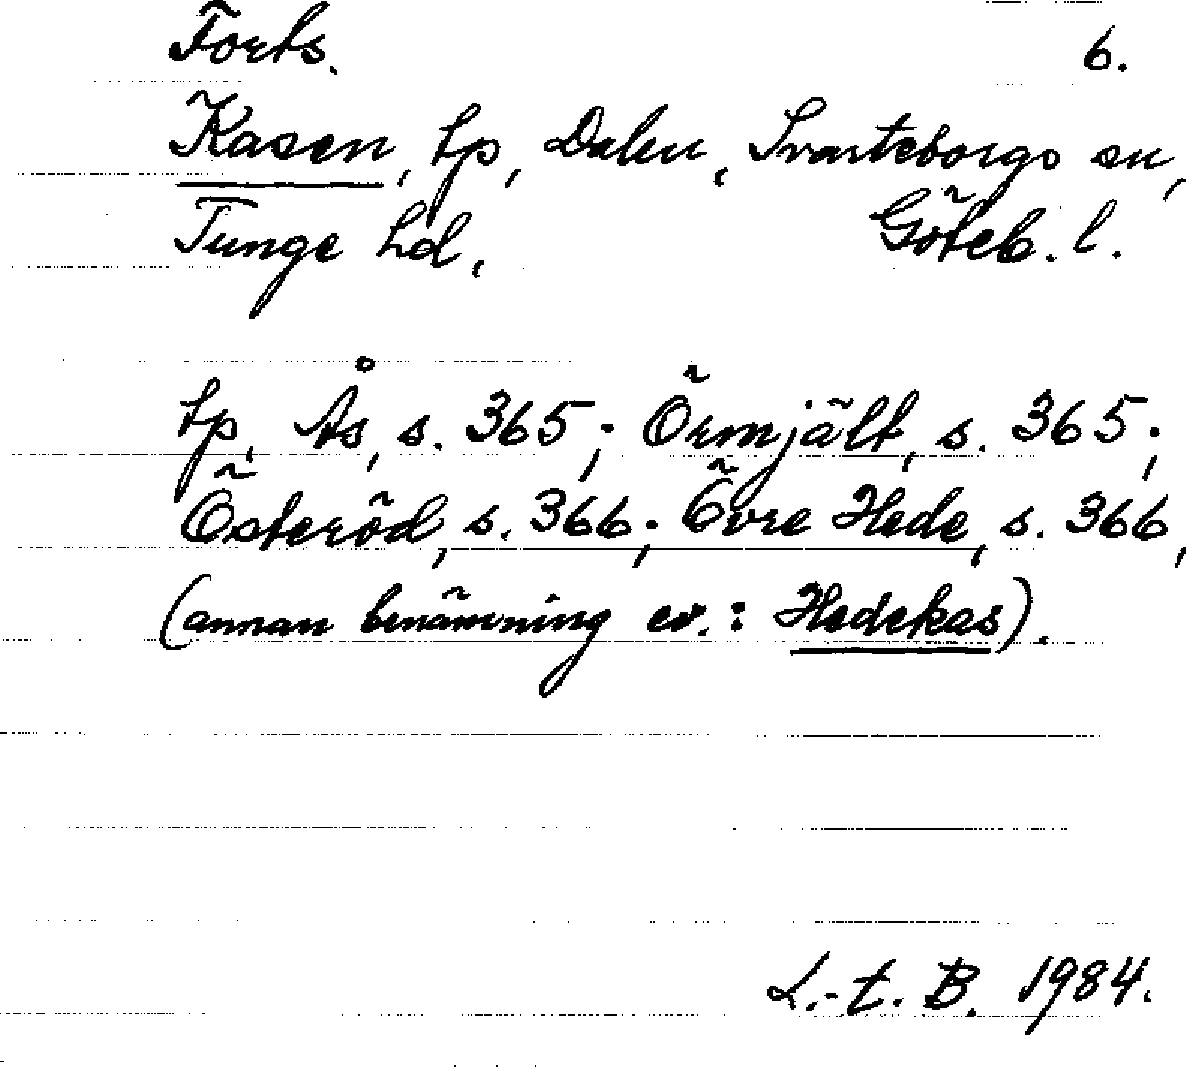 Forts. 6.
Kasen, tp, Dalen, Svarteborgs sn,
Tunge hd, Göteb. l.
tp, Ås, s. 365; Örmjält, s. 365;
Österöd, s. 366; Övre Hede, s. 366,
(annan benämning ev.: Hedekas).
L.-t. B. 1984.